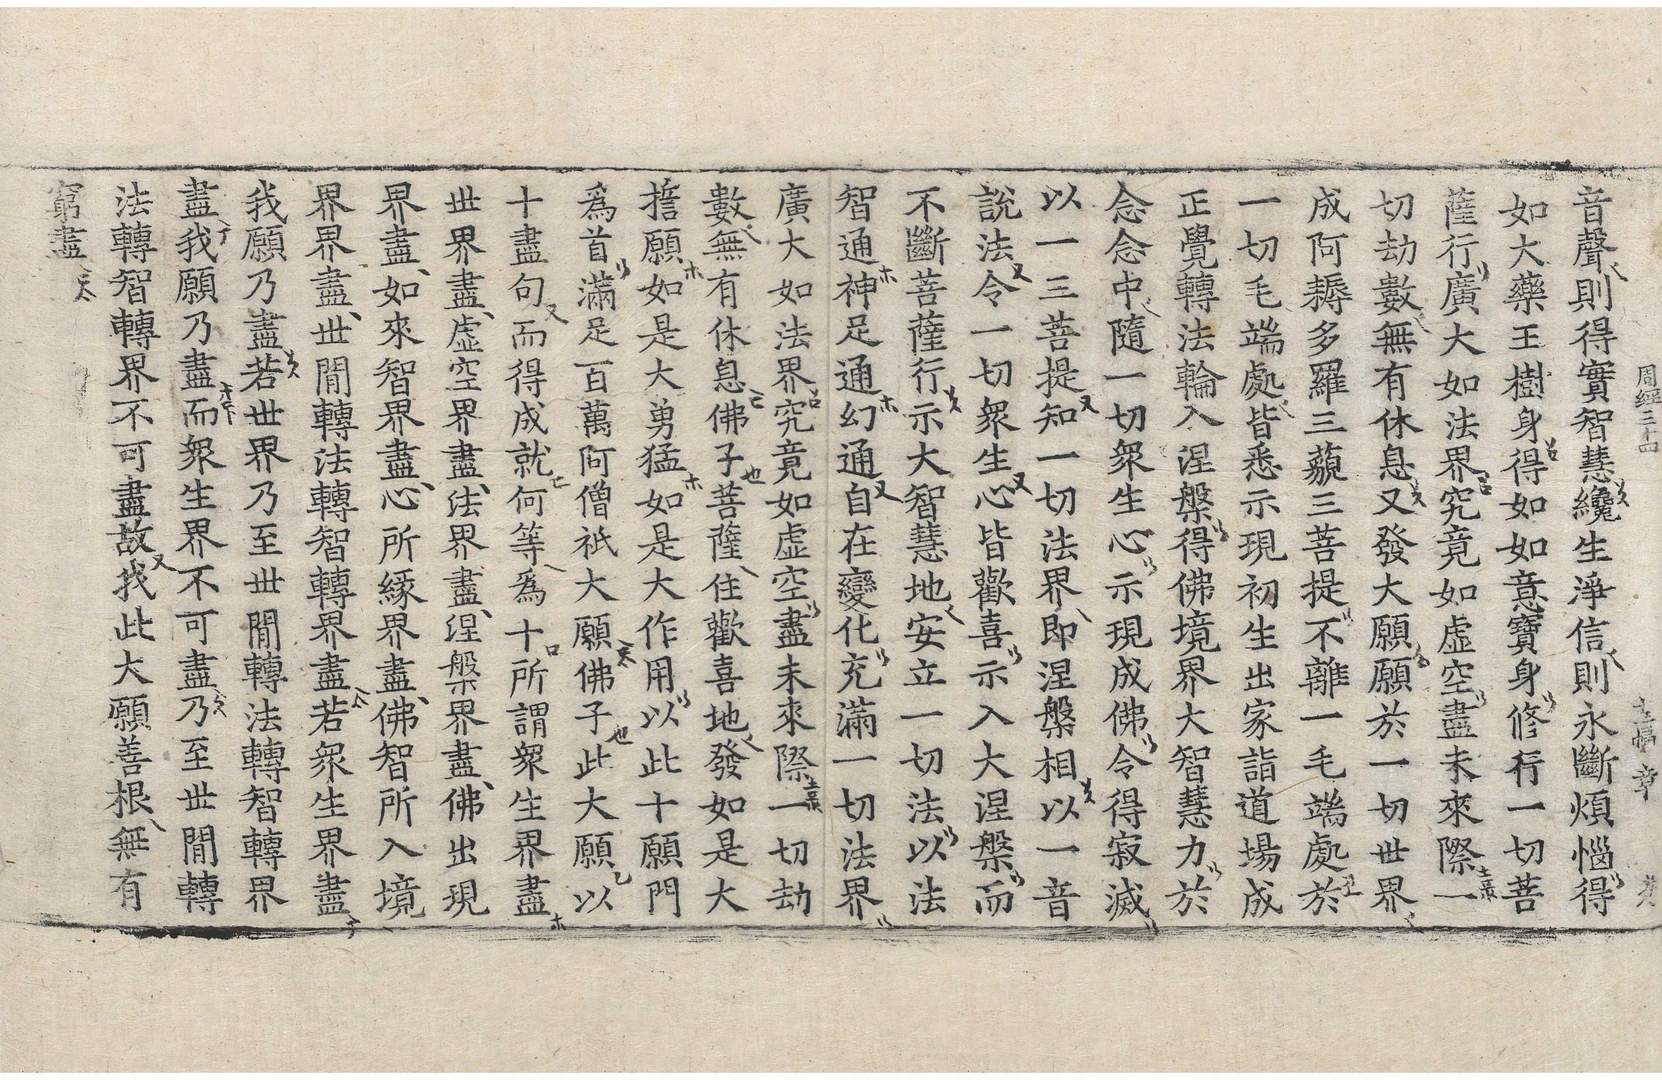 周經三十四
音聲則得實智慧纔生淨信則永斷煩惱得
如大藥王樹身得如如意寶身修行一切菩
薩行廣大如法界究竟如虛空盡未來際一
切劫數無有休息又發大願願於一切世界
成阿耨多羅三藐三菩提不離一毛端處於
一切毛端處皆悉示現初生出家詣道場成
正覺轉法輪入涅槃得佛境界大智慧力於
念念中隨一切衆生心示現成佛令得寂滅
以一三菩提知一切法界即涅槃相以一音
說法令一切衆生心皆歡喜示入大涅槃而
不斷菩薩行示大智慧地安立一切法以法
智通神足通幻通自在變化充滿一切法界
廣大如法界究竟如虛空盡未來際一切劫
數無有休息佛子菩薩住歡喜地發如是大
誓願如是大勇猛如是大作用以此十願門
爲首滿足百萬阿僧祇大願佛子此大願以
十盡句而得成就何等爲十所謂衆生界盡
世界盡虛空界盡法界盡涅槃界盡佛出現
界盡如來智界盡心所緣界盡佛智所入境
界界盡世閒轉法轉智轉界盡若衆生界盡
我願乃盡若世界乃至世閒轉法轉智轉界
盡我願乃盡而衆生界不可盡乃至世閒轉
法轉智轉界不可盡故我此大願善根無有
窮盡